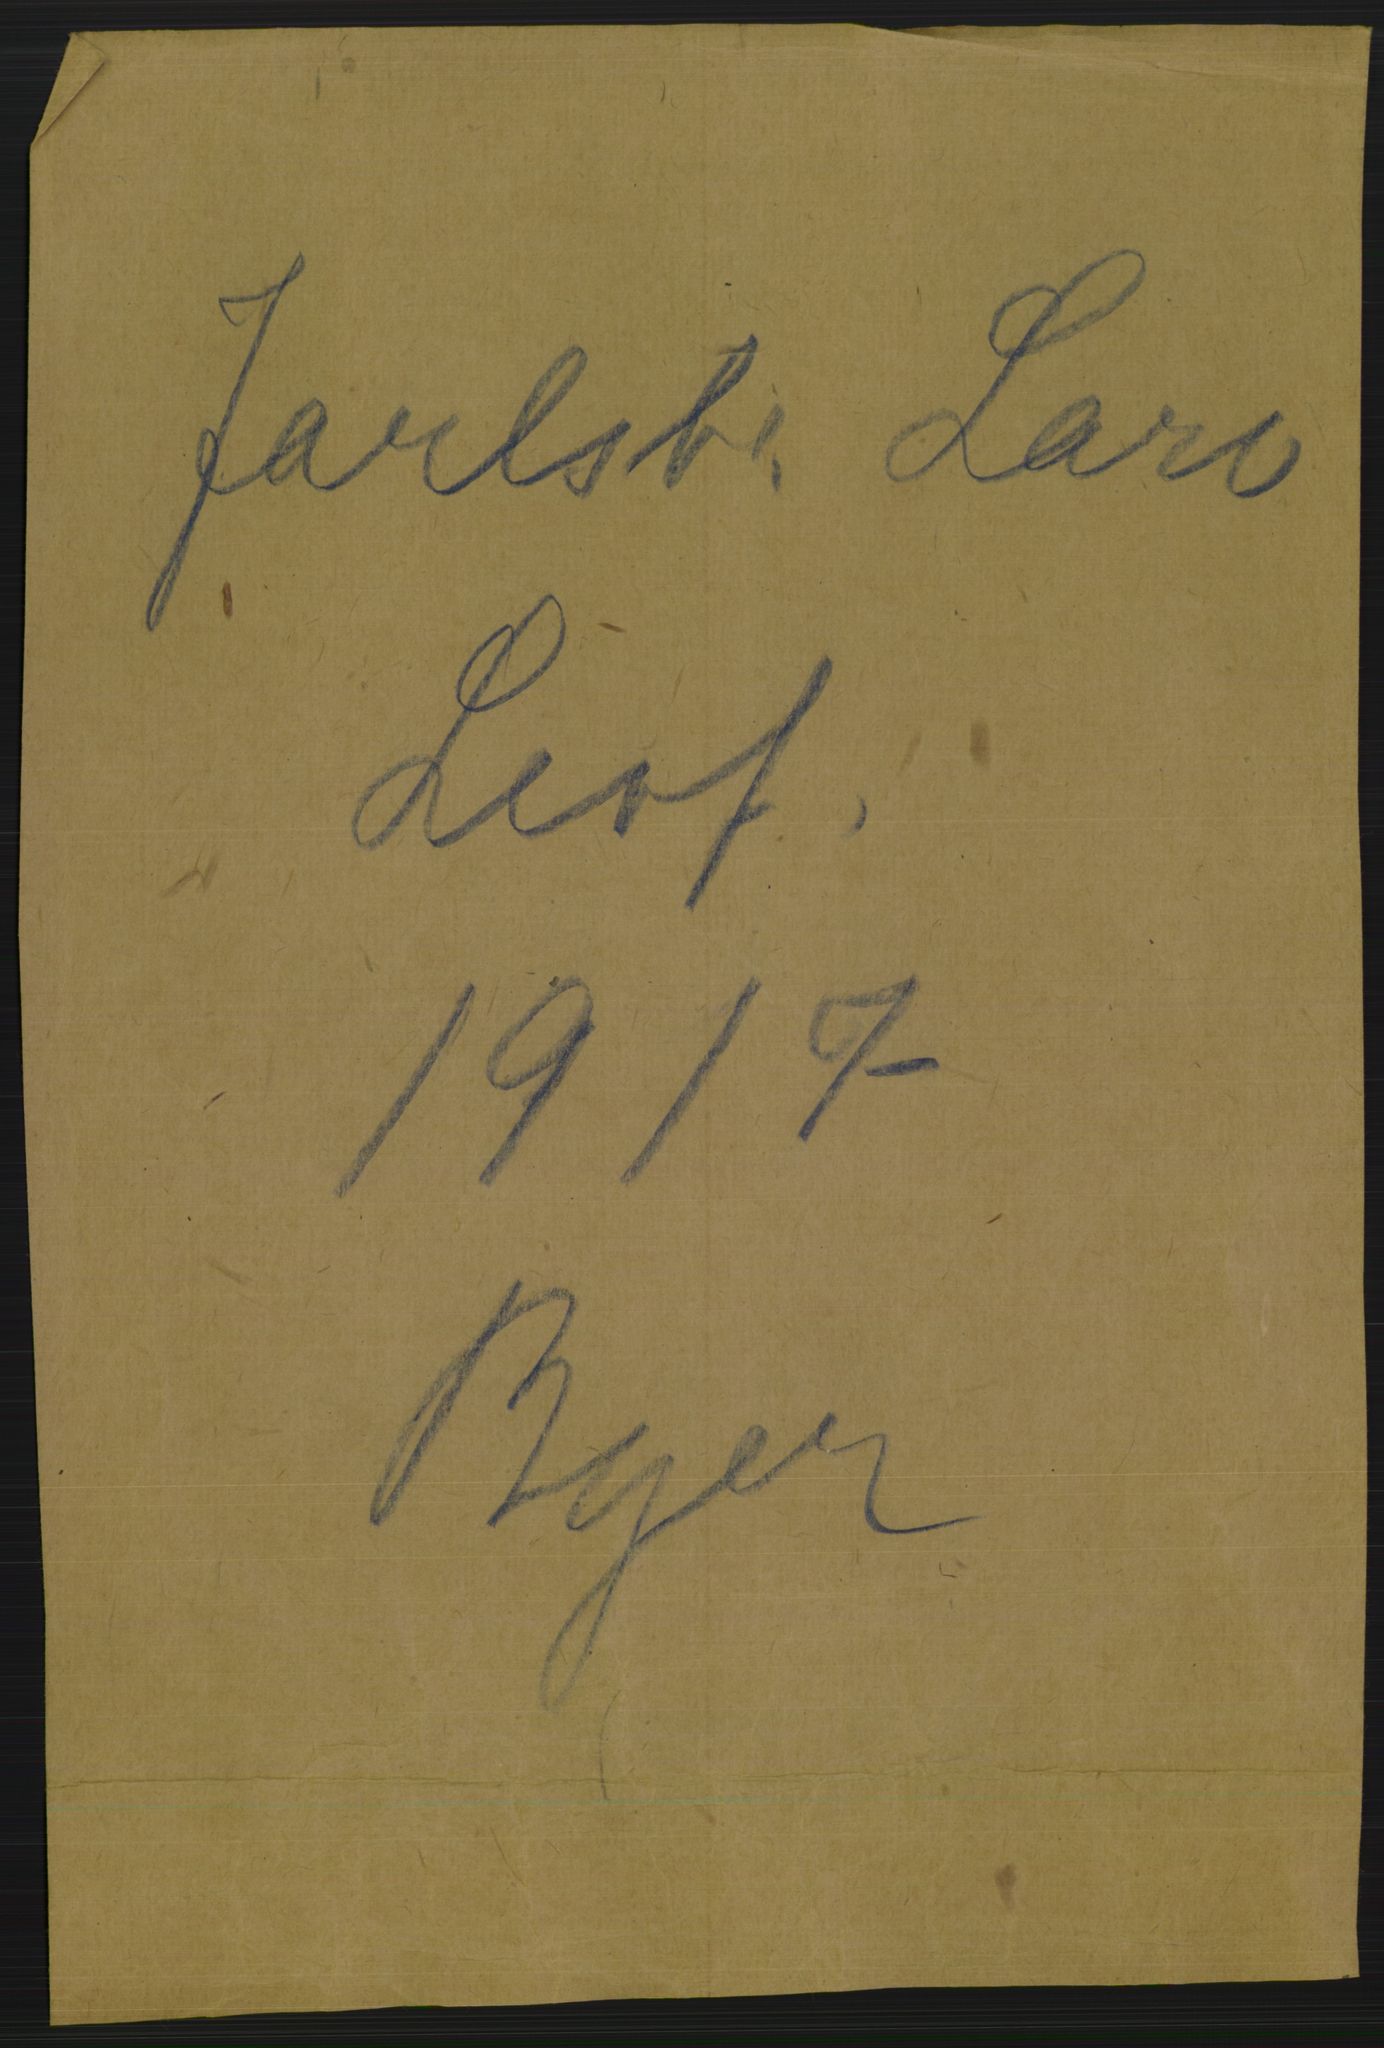 Jarlsb. Larv
Levf.
1917
Byer